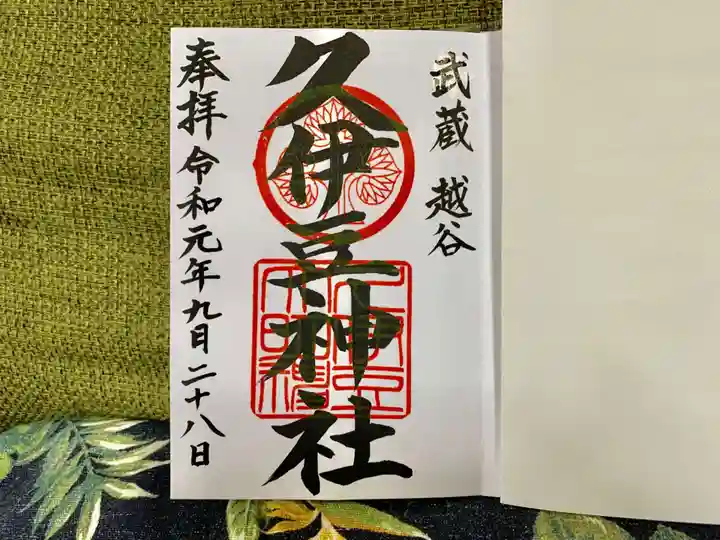 武蔵 越谷
久伊豆神社
奉拝 令和元年九月二十八日